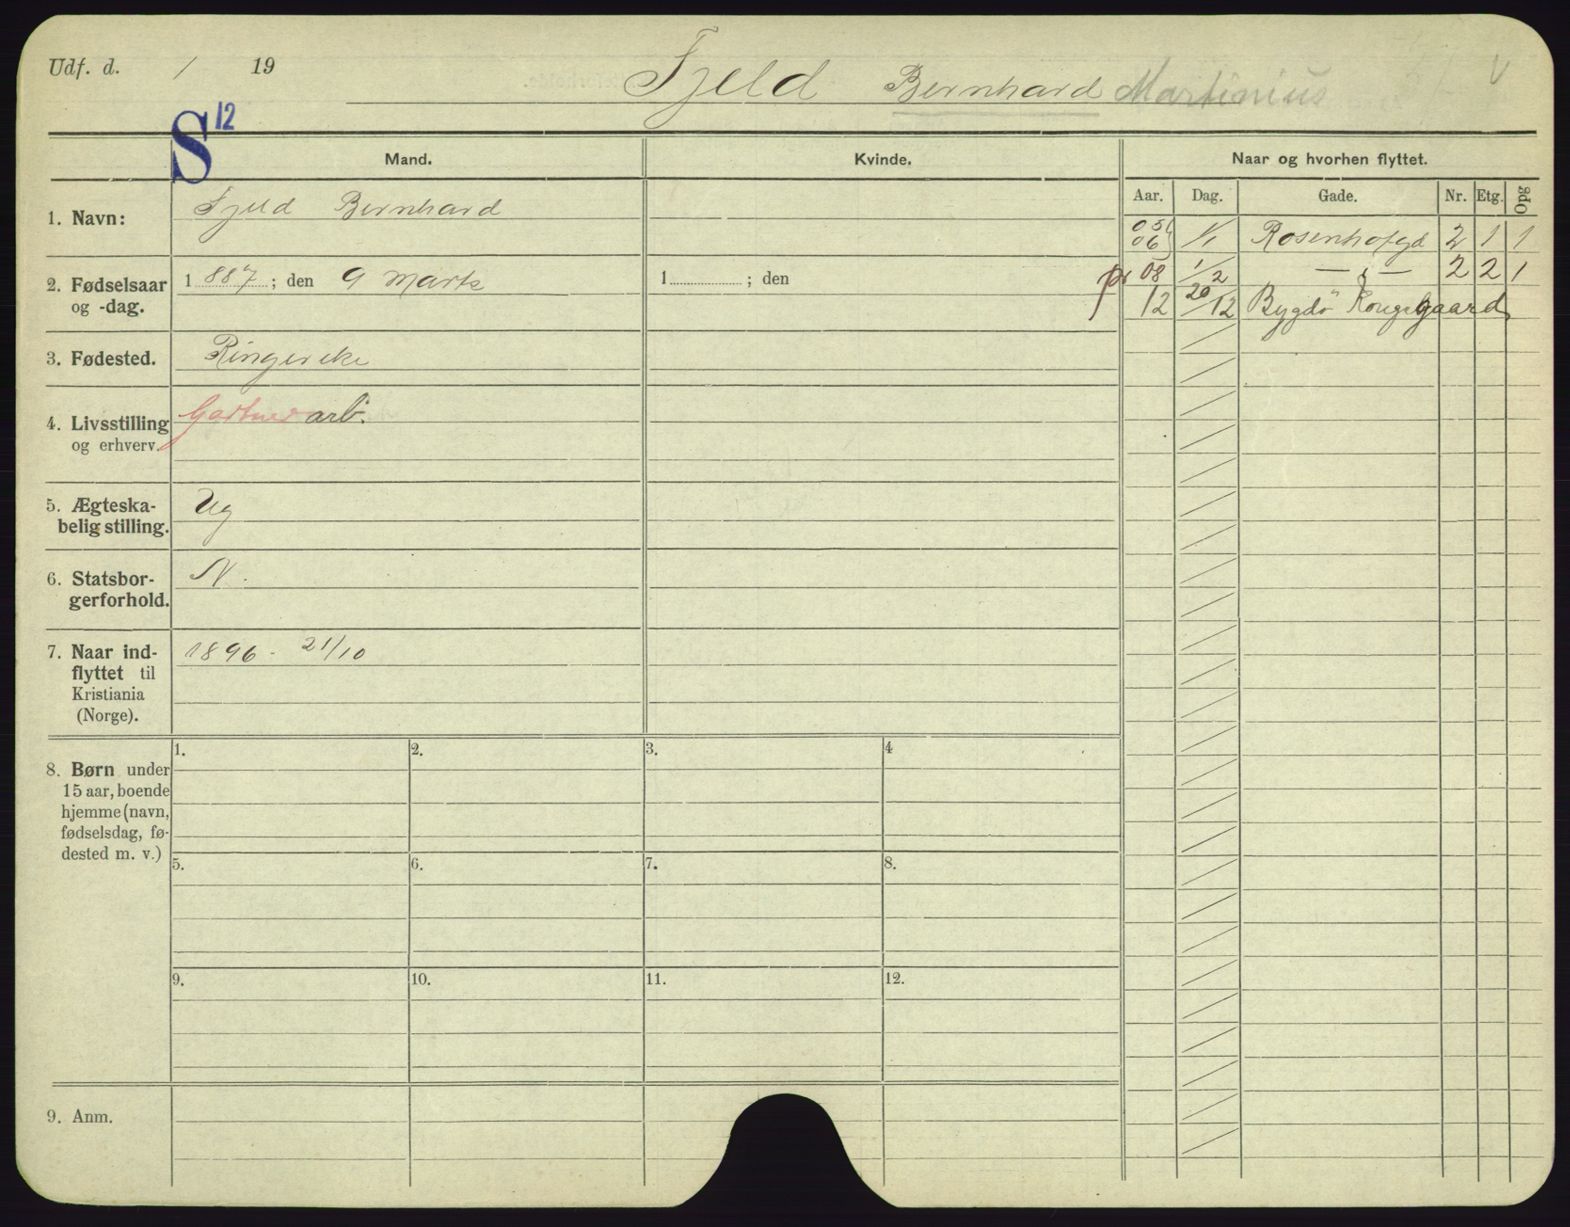 Udf. d. / 19
Fjeld Bernhard Martinius V
S 12
Mand. Kvinde. Naar og hvorhen flyttet.
Aar. Dag. Gade. Nr. Etg. Opg
1. Navn: Fjeld Bernhard
05 06 1/1 Rosenhofgd 2 1 1
2. Fødselsaar og -dag. 1887; den 9 Marts 1 ; den
pr 08 1/2 — " — 2 2 1
12 20/12 Bygdö Kongsgaard
3. Fødested. Ringerike
4. Livsstilling og erhverv. Gartnerarb.
5. Ægteska-
belig stilling. Ug
6. Statsbor-
gerforhold. N.
7. Naar ind-
flyttet til
Kristiania
(Norge). 1896 - 21/10
8. Børn under
15 aar, boende
hjemme (navn,
fødselsdag, fø-
dested m. v.)
1. 2. 3. 4
5. 6. 7. 8.
9. 10. 11. 12.
9. Anm.